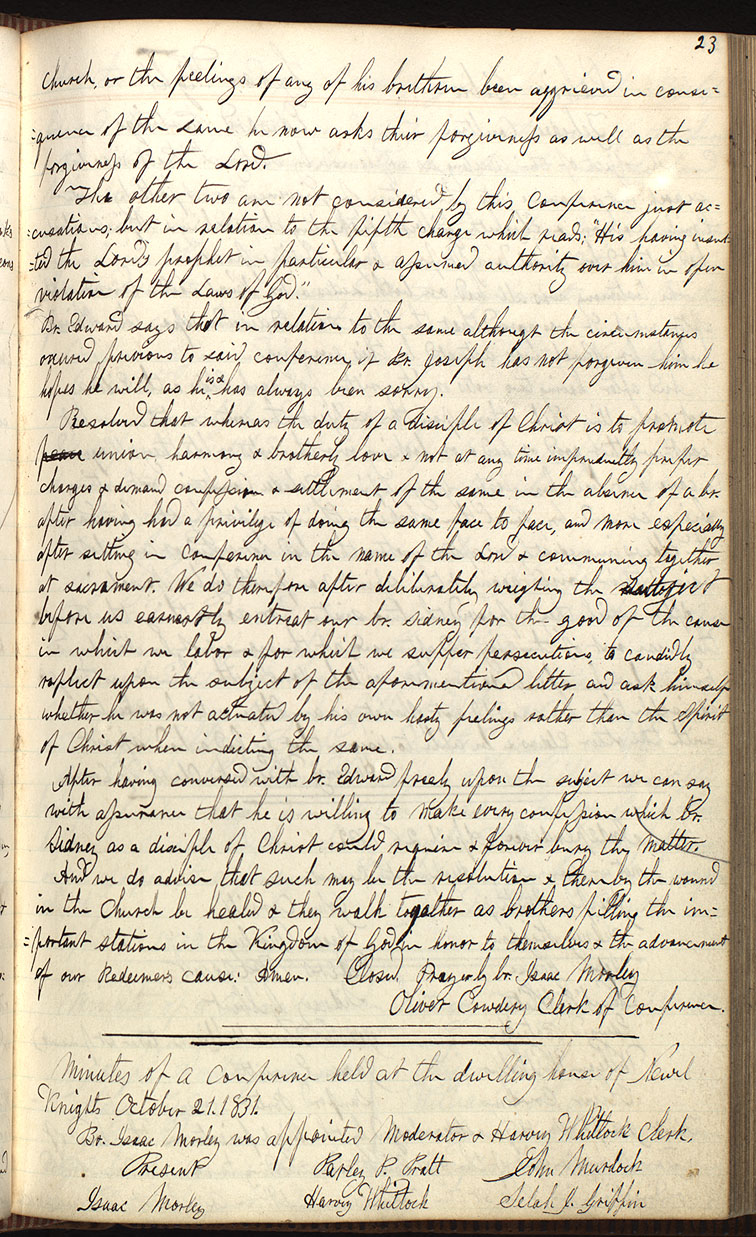 23
Church, or the feelings of any of his brethren been aggrieved in conse=
=quence of the same he now asks their forgiveness as well as the
forgiveness of the Lord.
The other two are not considered by this Conference just ac=
=cusations; but in relation to the fifth charge which reads; "His having insul=
=ted the Lord's prophet in particular & assumed authority over him in open
violation of the Laws of God."
Br. Edward says that in relation to the same although the circumstances
occured previous to said conference, if br. Joseph has not forgiven him he
hopes he will, as he is & has always been sorry.
Resolved that whereas the duty of a disciple of Christ is to promote
peace union, harmony & brotherly love & not at any time imprudently prefer
charges & demand confession & settlement of the same in the absence of a br.
after having had a privilege of doing the same face to face, and more especially
after setting in conference in the name of the Lord & communing together
at sacrament. We do therefore after deliberately weighing the subject
before us earnestly entreat our br. Sidney for the good of the cause
in which we labor & for which we suffer persecutions, to candidly
reflect upon the subject of the aforementioned letter and ask himself
whether he was not actuated by his own hasty feelings rather than the Spirit
of Christ when indicting the same.
After having conversed with br. Edward freely upon the subject we can say
with assurance that he is willing to make every confession which br.
Sidney as a disciple of Christ could require & forever bury the matter.
And we do advise that such may be the resolution & thereby the wound
in the Church be healed & they walk together as brothers filling the im=
=portant stations in the Kingdom of God in honor to themselves & the advancement
of our Redeemers cause: Amen. Closed. Prayer by br. Isaac Morley
Oliver Cowdery Clerk of Conference.
Minutes of a conference held at the dwelling house of Newel
Knights October 21. 1831.
Br. Isaac Morley was appointed Moderator & Harvey Whitlock Clerk.
Present Parley P. Pratt John Murdock
Isaac Morley Harvey Whitlock Selah J. Griffin